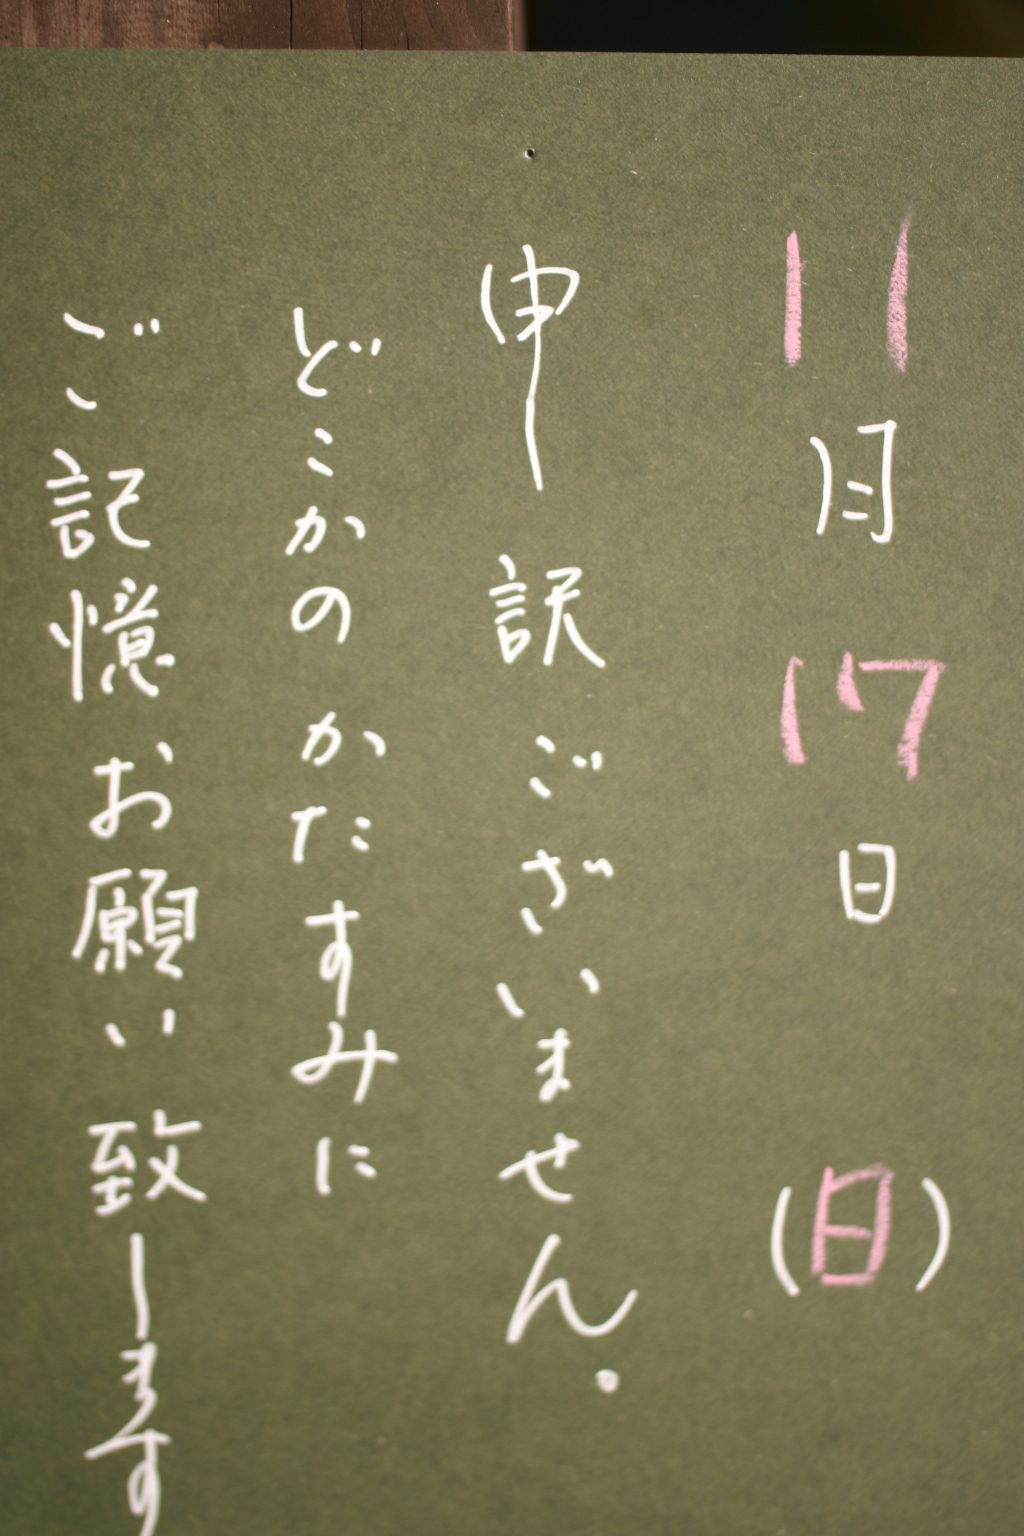 11月17日(日)
申し訳ございません。
どこかのかたすみに
ご記憶お願い致します